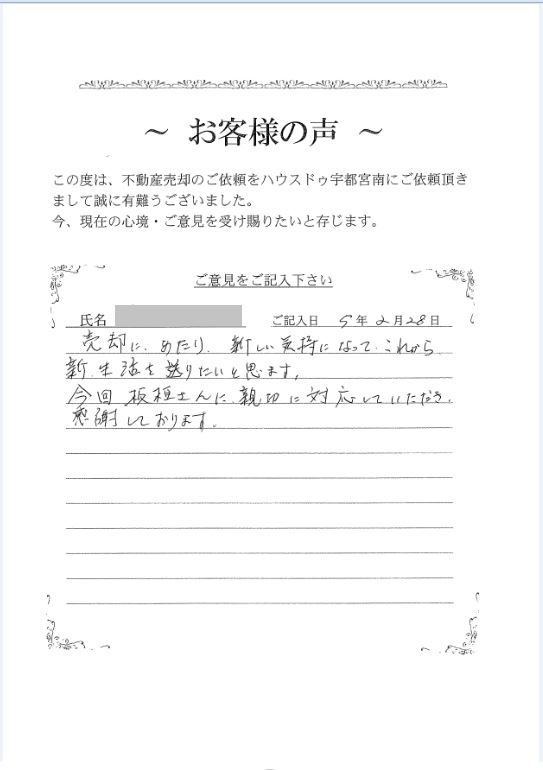 ～ お客様の声 ～
この度は、不動産売却のご依頼をハウスドゥ宇都宮南にご依頼頂き
まして誠に有難うございました。
今、現在の心境・ご意見を受け賜りたいと存じます。
ご意見をご記入下さい
氏名 ご記入日 5年2月28日
売却に、あたり、新しい気持になって、これから
新生活を送りたいと思ます。
今回 板垣さんに、親切に対応していただき、
感謝しております。